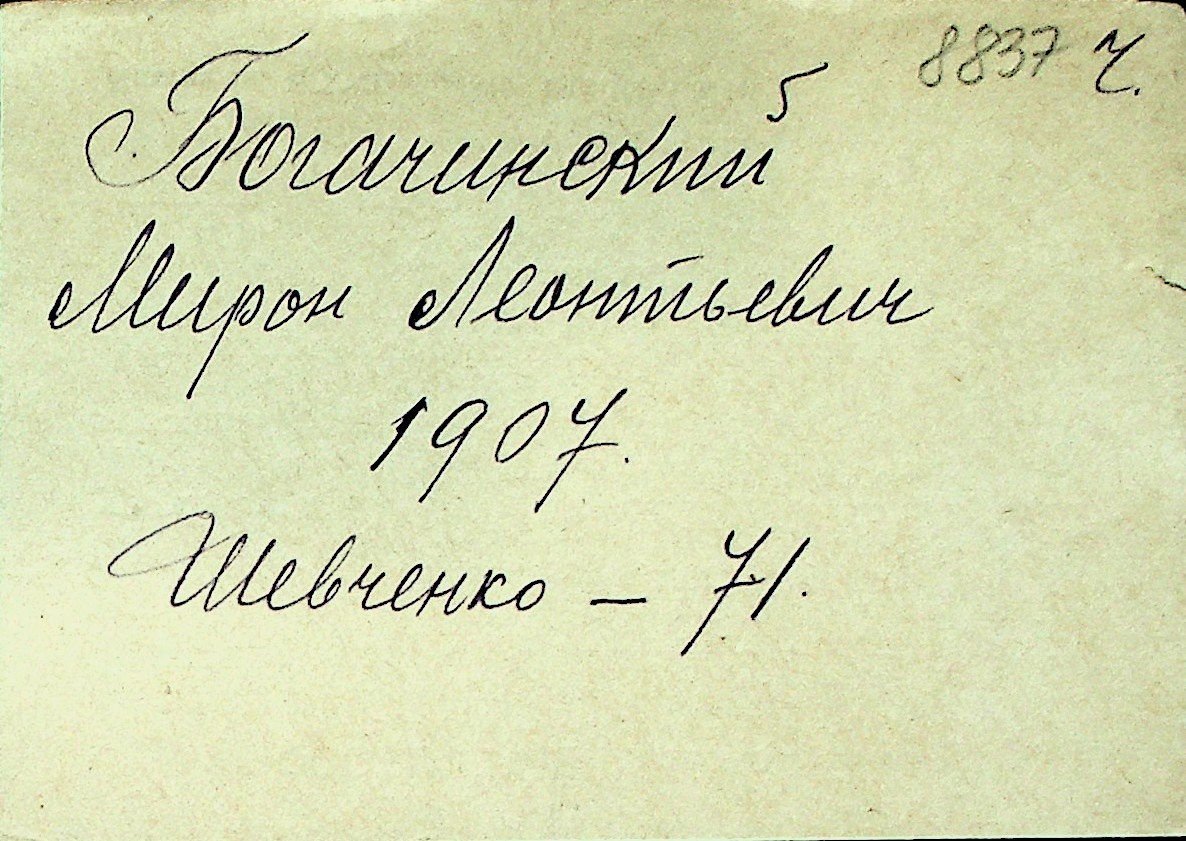 8837 Ч.
Богачинский
Мирон Леонтьевич
1907.
Шевченко – 71.